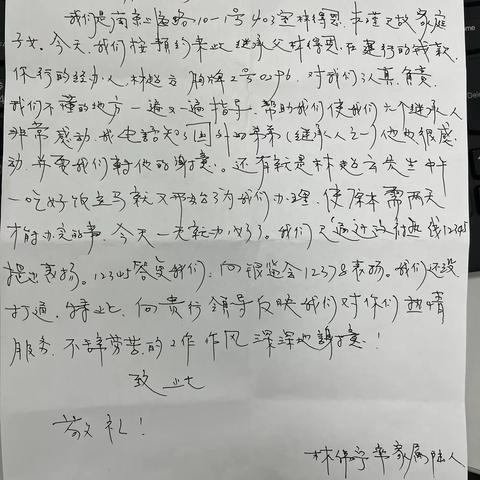 我们是南京上海路10-1号403室林得恩、
子女。今天、我们按预约来此继承父林得恩在建行的钱款、
你行的经办人林超云胸牌2号 对我们认真、负责、
我们不懂的地方一遍又一遍指导、帮助我们使我们六个继承人
非常感动、我电话知了国外的弟弟(继承人之一)他也很感
动、并要我们转他的謝意。还有就是林超云先生中午
一吃好饭立马就又开始了为我们办理、使原本需两天
才能办完的事、今天一天就办好了。我们又通过政府热线12345
提出表扬。12345答复我们:向银监会12378表扬。我们还没
打通。特此、向贵行领导反映我们对你们热情
服务、不辞劳苦的工作作风深深地謝意!
致此
敬礼!
林 率家属陆人